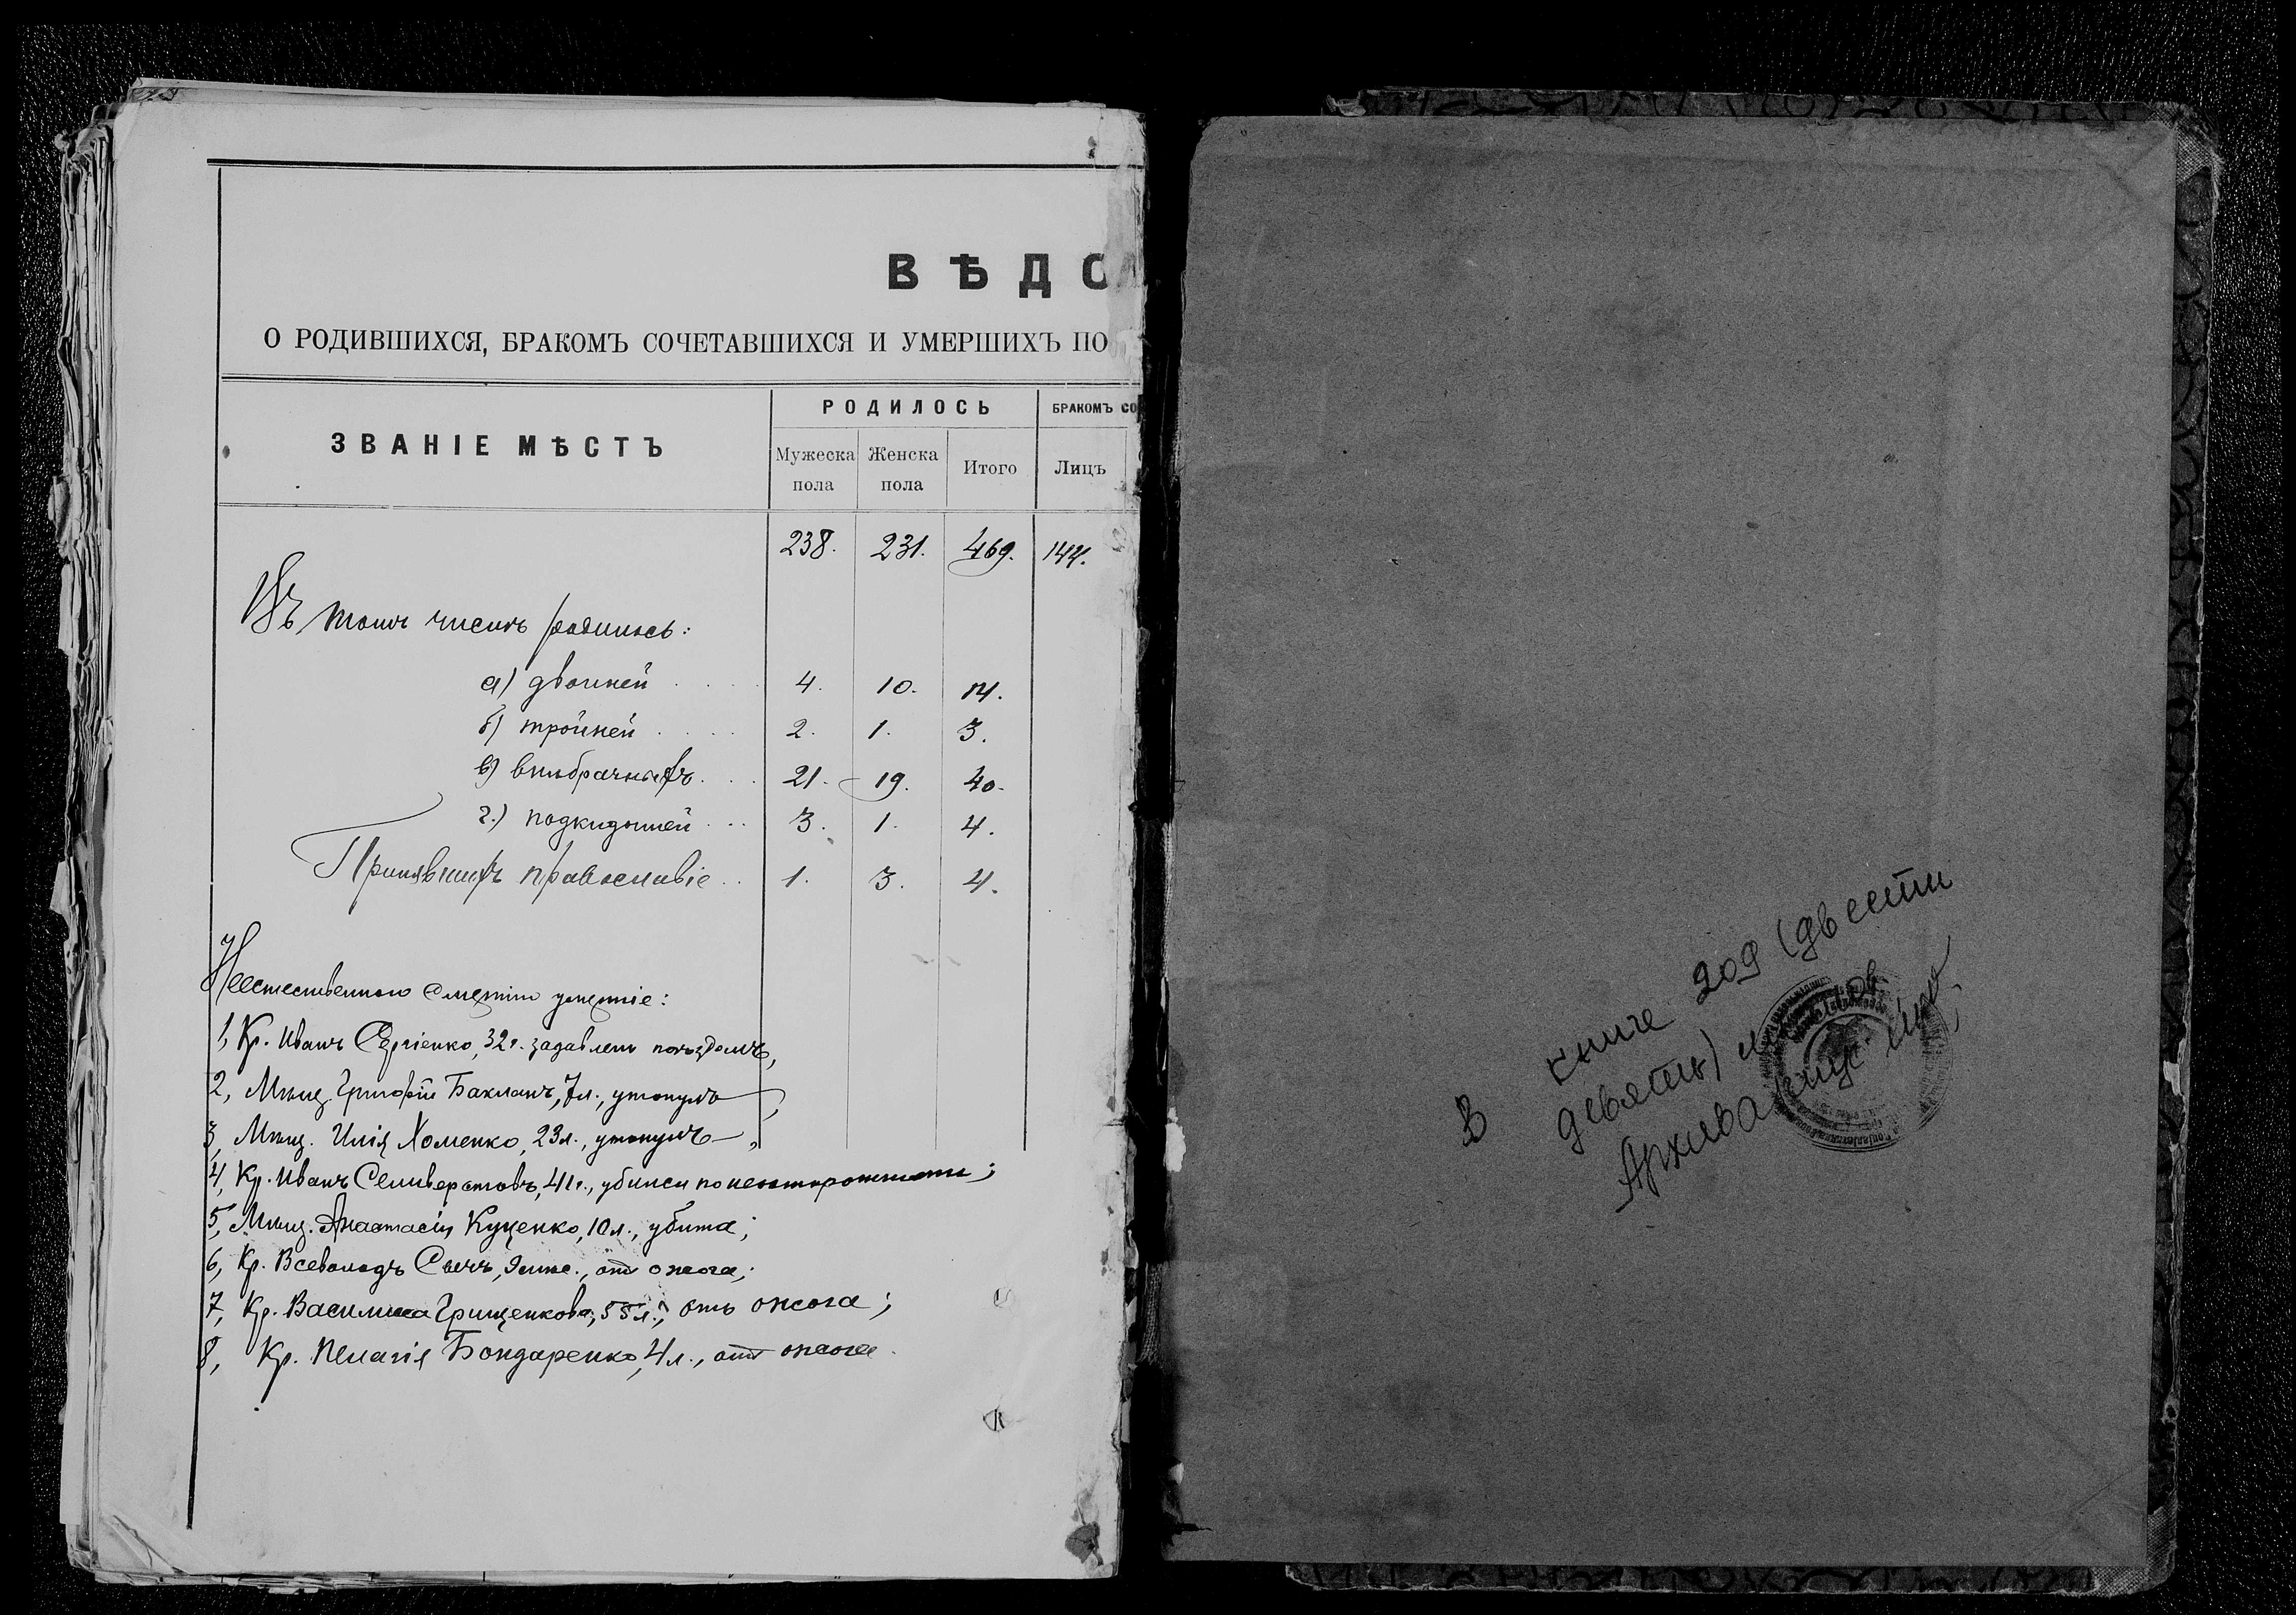 ВѢДО
О РОДИВШИХСЯ, БРАКОМЪ СОЧЕТАВШИХСЯ И УМЕРШИХЪ ПО
ЗВАНІЕ МѢСТЪ
РОДИЛОСЬ
БРАКОМЪ СО
Мужеска пола
Женска пола
Итого
Лицъ
238. 231. 469. 144.
Въ томъ числѣ родилось:
а) двойней 4. 10. 14.
б) тройней 2. 1. 3.
в) внѣбрачныхъ 21. 19. 40.
г.) подкидышей 3. 1. 4.
Принявшихъ православіе 1. 3. 4.
Неестественною смертію умершіе:
1, Кр. Иванъ Сергіенко, 32 г. задавленъ поѣздомъ,
2, Мѣщ. Григорій Бакланъ, 7 л., утонулъ,
3, Мѣщ. Илія Хоменко, 23 л., утонулъ,
4, Кр. Иванъ Селиверстовъ, 41 г., убился по неосторожности;
5, Мѣщ. Анастасія Куценко, 10 л., убита;
6, Кр. Всеволодъ Сычъ, 9 мѣс., отъ ожога;
7, Кр. Василиса Грищенкова, 55 л., отъ ожога;
8, Кр. Пелагія Бондаренко, 4 л., отъ ожога.
В книге 209 (двести
девять) листов